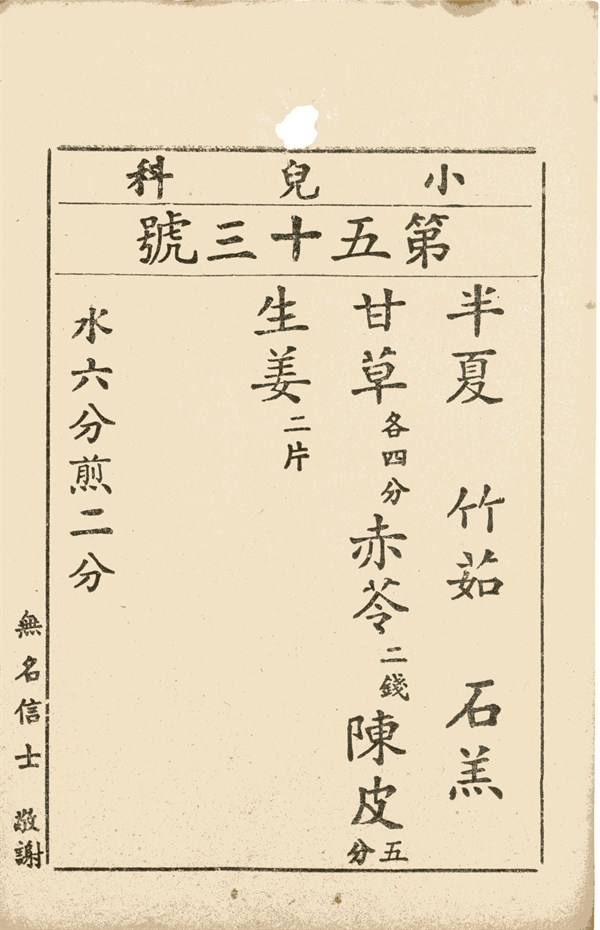 小兒科
第五十三號
半夏 竹茹 石羔
甘草各四分赤苓二錢陳皮五分
生姜二片
水六分煎二分
無名信士 敬謝